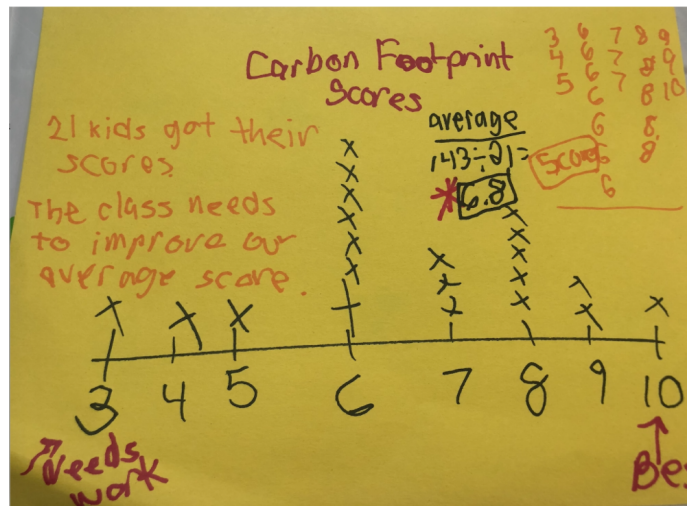 Carbon Footprint
Scores
3 6 7 8 9
4 6 7 8 9
5 6 7 8 10
6 8
6 8
6
6
Score
21 kids got their
scores.
The class needs
to improve our
average score.
average
143÷21=
*6.8
3 4 5 6 7 8 9 10
Needs
work
Bes